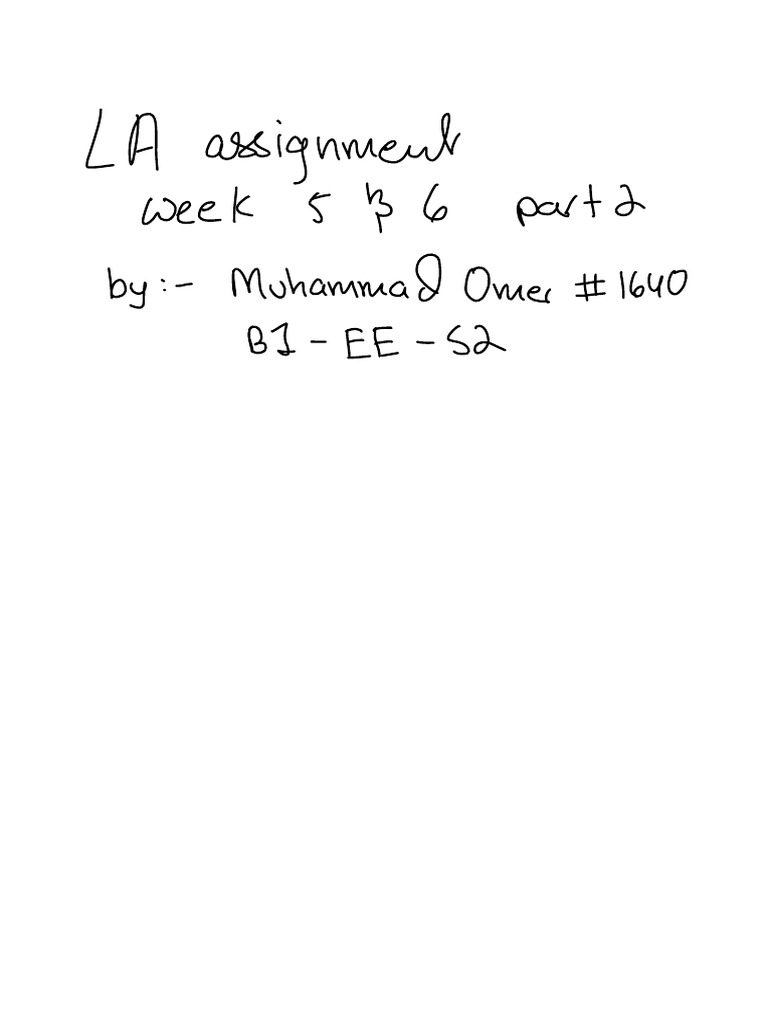 LA assignment
week 5 & 6 part 2
by :- Muhammad Omer # 1640
BJ - EE - S2